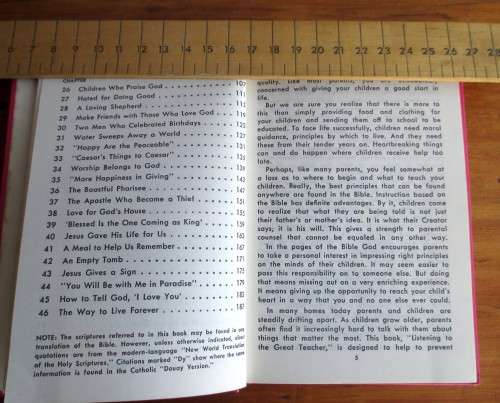 6 7 8 9 10 11 12 13 14 15 16 17 18 19 20 21 22 23 24 25 26 27 28
CHAPTER
26 Children Who Praise God 107
27 Hated for Doing Good
28 A Loving Shepherd
29 Make Friends with Those Who Love God
30 Two Men Who Celebrated Birthdays
31 Water Sweeps Away a World
32 "Happy Are the Peaceable"
33 "Caesar's Things to Caesar"
34 Worship Belongs to God
35 "More Happiness in Giving"
36 The Boastful Pharisee
37 The Apostle Who Became a Thief
38 Love for God's House
39 'Blessed Is the One Coming as King'
40 Jesus Gave His Life for Us 163
41 A Meal to Help Us Remember 167
42 An Empty Tomb 171
43 Jesus Gives a Sign 175
44 "You Will Be with Me in Paradise" 179
45 How to Tell God, 'I Love You' 183
46 The Way to Live Forever 187
NOTE: The scriptures referred to in this book may be found in any
translation of the Bible. However, unless otherwise indicated, direct
quotations are from the modern-language "New World Translation
of the Holy Scriptures." Citations marked "Dy" show where the same
information is found in the Catholic "Douay Version."
quality. Like most parents, you are
concerned with giving your children a good start in
life.
But we are sure you realize that there is more to
this than simply providing food and clothing for
your children and sending them off to school to be
educated. To face life successfully, children need moral
guidance, principles by which to live. And they need
these from their tender years on. Heartbreaking things
can and do happen where children receive help too
late.
Perhaps, like many parents, you feel somewhat at
a loss as to where to begin and what to teach your
children. Really, the best principles that can be found
anywhere are found in the Bible. Instruction based on
the Bible has definite advantages. By it, children come
to realize that what they are being told is not just
their father's or mother's idea. It is what their Creator
says; it is his will. This gives a strength to parental
counsel that cannot be equaled in any other way.
In the pages of the Bible God encourages parents
to take a personal interest in impressing right principles
on the minds of their children. It may seem easier to
pass this responsibility on to someone else. But doing
that means missing out on a very enriching experience.
It means giving up the opportunity to reach your child's
heart in a way that you and no one else ever could.
In many homes today parents and children are
steadily drifting apart. As children grow older, parents
often find it increasingly hard to talk with them about
things that matter the most. This book, "Listening to
the Great Teacher," is designed to help to prevent
5